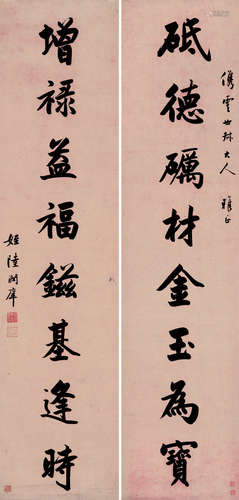 儁雲世林大人雅正
砥德礪材金玉為寶
增祿益福鎡基逢時
姪陸潤庠